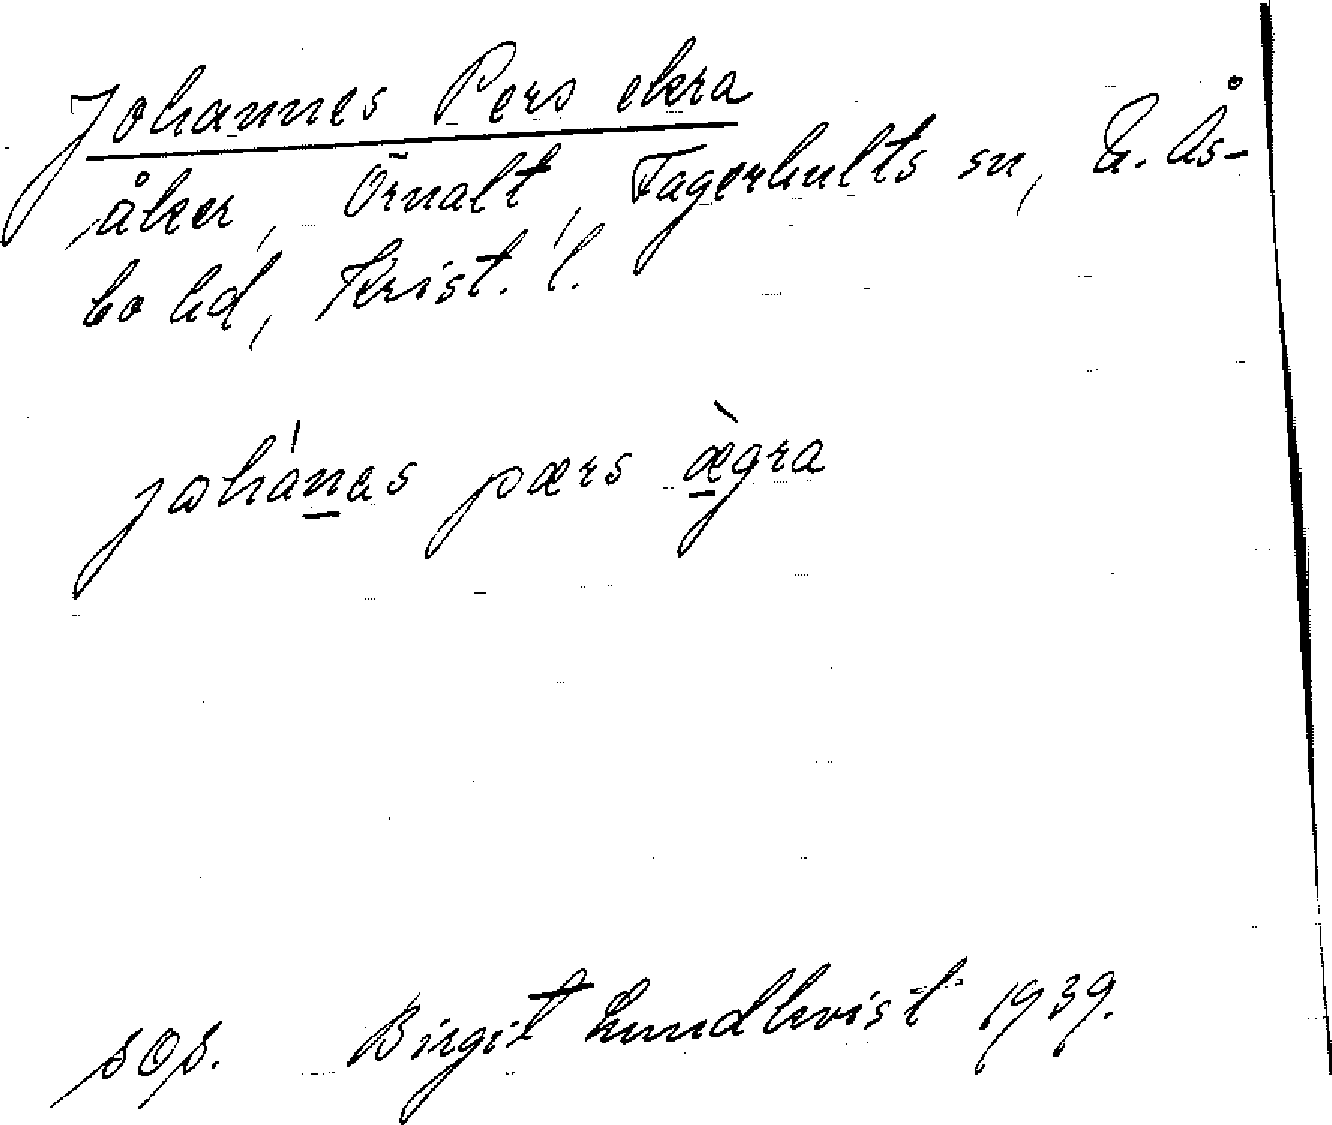 Johannes Pers ekra
åker, Örnalt, Fagerhults sn, Ö. Ås-
bo hd, Krist. l.
johánas pærs æ̀gra
sOs. Birgit Lundkvist 1939.